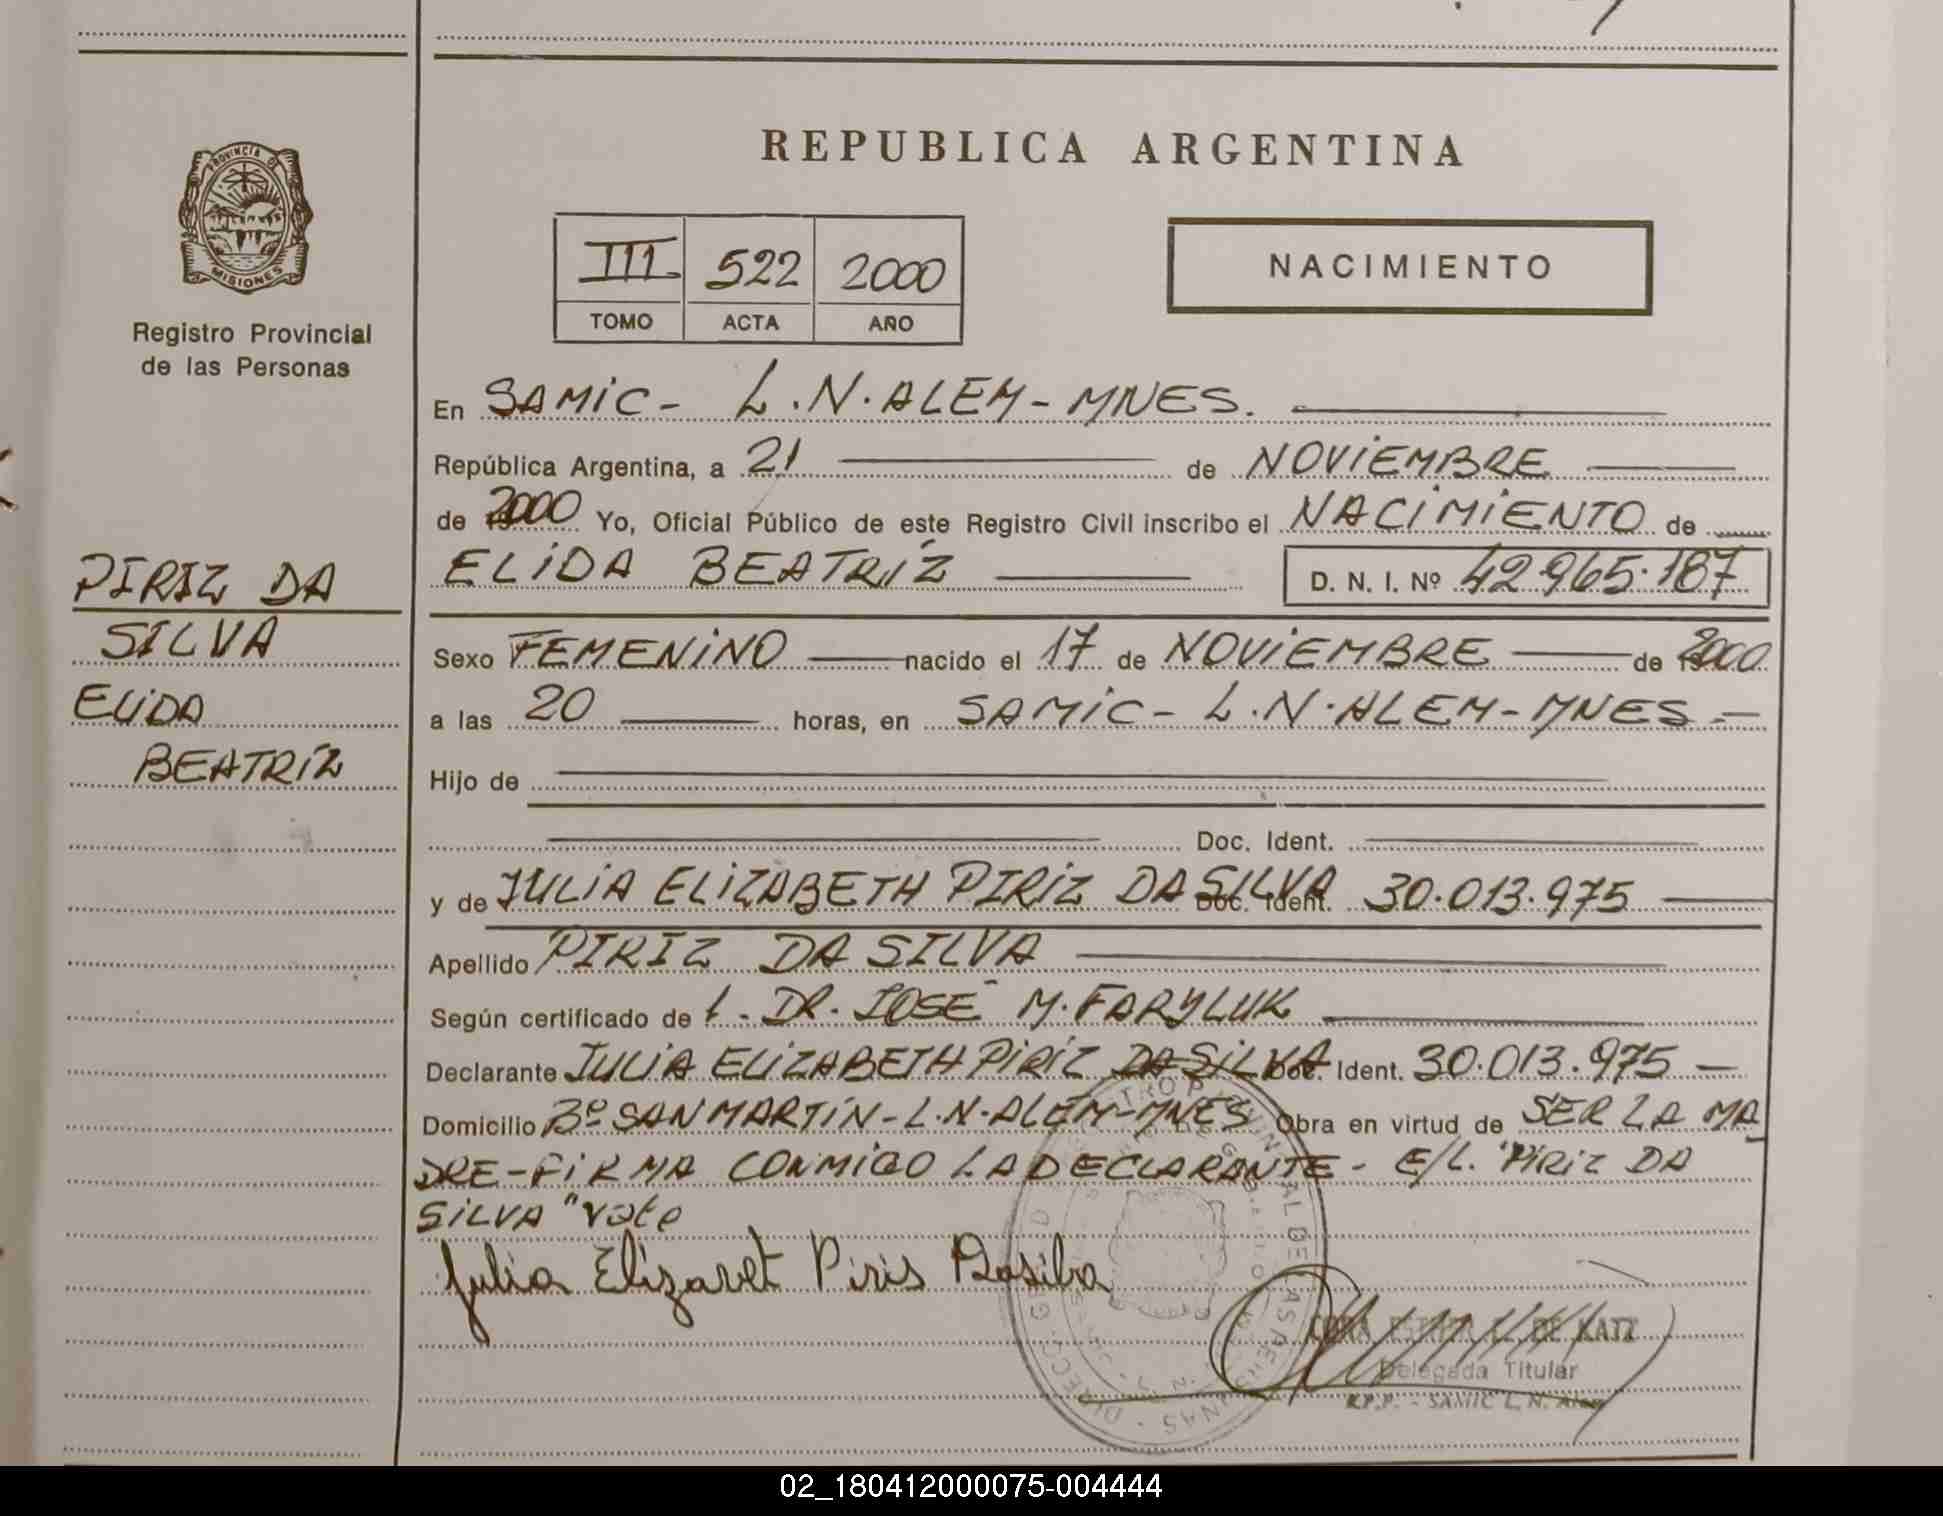 REPUBLICA ARGENTINA
PROVINCIA DE
MISIONES
Registro Provincial
de las Personas
III 522 2000
TOMO ACTA AÑO
NACIMIENTO
En SAMIC - L.N. ALEM - MNES.
República Argentina, a 21 de NOVIEMBRE
de 2000 Yo, Oficial Público de este Registro Civil inscribo el NACIMIENTO de
ELIDA BEATRÍZ D. N. I. Nº 42.965.187
PIRIZ DA
SILVA
ELIDA
BEATRÍZ
Sexo FEMENINO nacido el 17 de NOVIEMBRE de 2000
a las 20 horas, en SAMIC - L.N. ALEM - MNES -
Hijo de
Doc. Ident.
y de JULIA ELIZABETH PIRIZ DA SILVA Doc. Ident. 30.013.975
Apellido PIRIZ DA SILVA
Según certificado de 1. DR. JOSÉ M. FARYLUK
Declarante JULIA ELIZABETH PIRIZ DA SILVA Doc. Ident. 30.013.975 -
Domicilio Bº SAN MARTÍN - L.N. ALEM - MNES Obra en virtud de SER LA MA
DRE - FIRMA CONMIGO LA DECLARANTE - E/L. "PIRIZ DA
SILVA" Vale
Julia Elizaret Piris Dasilva
DE KATZ
Delegada Titular
R.P.P. - SAMIC L. N. Alem
02_180412000075-004444